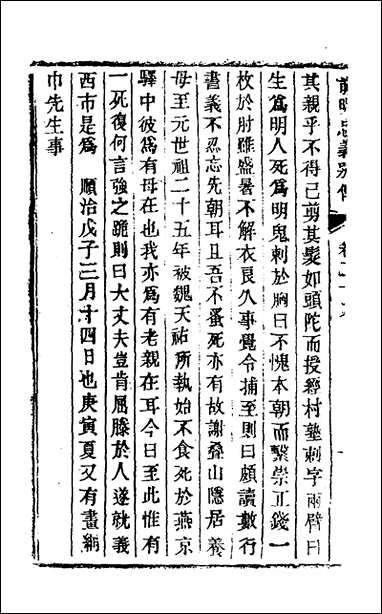 前明忠義别傳
其親乎不得已剪其髮如頭陀而授經村塾刺字兩臂曰
生爲明人死爲明鬼刺於胸曰不愧本朝而繫崇正錢一
枚於肘雖盛暑不解衣良久事覺令捕至則曰頗讀數行
書義不忍忘先朝耳且吾不蚤死亦有故謝叠山隱居養
母至元世祖二十五年被魏天祐所執始不食死於燕京
驛中彼爲有母在也我亦爲有老親在耳今日至此惟有
一死復何言強之跪則曰大丈夫豈肯屈膝於人遂就義
西市是爲　順治戊子三月十四日也庚寅夏又有畫網
巾先生事